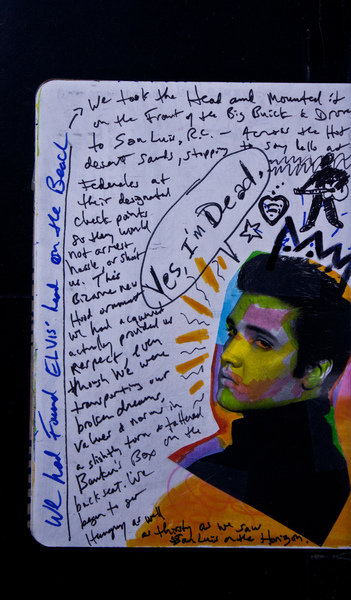 We had Found ELVIS' head on the Beach
We took the Head and Mounted it
on the Front of the Big Buick & Drove
to San Luis, R.C. - Across the Hot
desert sands, stopping to say hello at
Federales at
their designated
check points
so they would
not arrest,
hassle or shoot
us. This
Bizarre new
Hood ornament
we had acquired
actually provided us
respect, even
though we were
transporting our
broken dreams,
values & norms in
a slightly torn & tattered
Banker's Box on the
backseat. We
began to get
Hungry as well
as thirsty as we saw
San Luis on the Horizon.
Yes, I'm Dead.